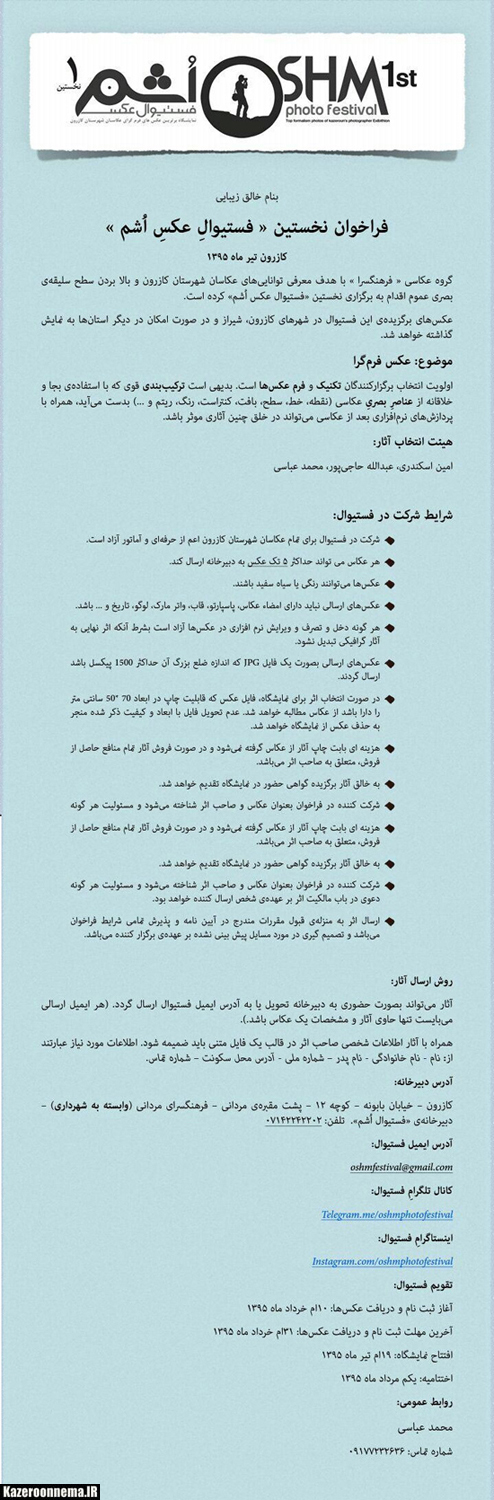 نخستین
۱
اُشم
فستیوال عکس
نمایشگاه برترین عکس های فرم گرای عکاسان شهرستان کازرون
OSHM 1st
photo festival
Top formalism photos of kazeroon's photographer Exhibition
بنام خالق زیبایی
فراخوان نخستین « فستیوالِ عکسِ اُشم »
کازرون تیر ماه ۱۳۹۵
گروه عکاسی « فرهنگسرا » با هدف معرفی توانایی‌های عکاسان شهرستان کازرون و بالا بردن سطح سلیقه‌ی
بصری عموم اقدام به برگزاری نخستین «فستیوال عکس اُشم» کرده است.
عکس‌های برگزیده‌ی این فستیوال در شهرهای کازرون، شیراز و در صورت امکان در دیگر استان‌ها به نمایش
گذاشته خواهد شد.
موضوع: عکس فرم‌گرا
اولویت انتخاب برگزارکنندگان تکنیک و فرم عکس‌ها است. بدیهی است ترکیب‌بندی قوی که با استفاده‌ی بجا و
خلاقانه از عناصرِ بصریِ عکاسی (نقطه، خط، سطح، بافت، کنتراست، رنگ، ریتم و ...) بدست می‌آید، همراه با
پردازش‌های نرم‌افزاری بعد از عکاسی می‌تواند در خلق چنین آثاری موثر باشد.
هیئت انتخاب آثار:
امین اسکندری، عبدالله حاجی‌پور، محمد عباسی
شرایط شرکت در فستیوال:
شرکت در فستیوال برای تمام عکاسان شهرستان کازرون اعم از حرفه‌ای و آماتور آزاد است.
هر عکاس می تواند حداکثر ۵ تک عکس به دبیرخانه ارسال کند.
عکس‌ها می‌توانند رنگی یا سیاه سفید باشند.
عکس‌های ارسالی نباید دارای امضاء عکاس، پاسپارتو، قاب، واتر مارک، لوگو، تاریخ و ... باشد.
هر گونه دخل و تصرف و ویرایش نرم افزاری در عکس‌ها آزاد است بشرط آنکه اثر نهایی به
آثار گرافیکی تبدیل نشود.
عکس‌های ارسالی بصورت یک فایل JPG که اندازه ضلع بزرگ آن حداکثر 1500 پیکسل باشد
ارسال گردند.
در صورت انتخاب اثر برای نمایشگاه، فایل عکس که قابلیت چاپ در ابعاد 70 *50 سانتی متر
را دارا باشد از عکاس مطالبه خواهد شد. عدم تحویل فایل با ابعاد و کیفیت ذکر شده منجر
به حذف عکس از نمایشگاه خواهد شد.
هزینه ای بابت چاپ آثار از عکاس گرفته نمی‌شود و در صورت فروش آثار تمام منافع حاصل از
فروش، متعلق به صاحب اثر می‌باشد.
به خالق آثار برگزیده گواهی حضور در نمایشگاه تقدیم خواهد شد.
شرکت کننده در فراخوان بعنوان عکاس و صاحب اثر شناخته می‌شود و مسئولیت هر گونه
هزینه ای بابت چاپ آثار از عکاس گرفته نمی‌شود و در صورت فروش آثار تمام منافع حاصل از
فروش، متعلق به صاحب اثر می‌باشد.
به خالق آثار برگزیده گواهی حضور در نمایشگاه تقدیم خواهد شد.
شرکت کننده در فراخوان بعنوان عکاس و صاحب اثر شناخته می‌شود و مسئولیت هر گونه
دعوی در باب مالکیت اثر بر عهده‌ی شخص ارسال کننده خواهد بود.
ارسال اثر به منزله‌ی قبول مقررات مندرج در آیین نامه و پذیرش تمامی شرایط فراخوان
می‌باشد و تصمیم گیری در مورد مسایل پیش بینی نشده بر عهده‌ی برگزار کننده می‌باشد.
روش ارسال آثار:
آثار می‌تواند بصورت حضوری به دبیرخانه تحویل یا به آدرس ایمیل فستیوال ارسال گردد. (هر ایمیل ارسالی
می‌بایست تنها حاوی آثار و مشخصات یک عکاس باشد.).
همراه با آثار اطلاعات شخصی صاحب اثر در قالب یک فایل متنی باید ضمیمه شود. اطلاعات مورد نیاز عبارتند
از: نام - نام خانوادگی - نام پدر – شماره ملی - آدرس محل سکونت – شماره تماس.
آدرس دبیرخانه:
کازرون – خیابان بابونه – کوچه ۱۲ – پشت مقبره‌ی مردانی – فرهنگسرای مردانی (وابسته به شهرداری) –
دبیرخانه‌ی «فستیوال اُشم». تلفن: ۰۷۱۴۲۲۴۲۲۰۲
آدرس ایمیل فستیوال:
oshmfestival@gmail.com
کانال تلگرامِ فستیوال:
Telegram.me/oshmphotofestival
اینستاگرامِ فستیوال:
Instagram.com/oshmphotofestival
تقویم فستیوال:
آغاز ثبت نام و دریافت عکس‌ها: ۱۰ام خرداد ماه ۱۳۹۵
آخرین مهلت ثبت نام و دریافت عکس‌ها: ۳۱ام خرداد ماه ۱۳۹۵
افتتاح نمایشگاه: ۱۹ام تیر ماه ۱۳۹۵
اختتامیه: یکم مرداد ماه ۱۳۹۵
روابط عمومی:
محمد عباسی
شماره تماس: ۰۹۱۷۷۲۳۲۶۳۶
Kazeroonnema.IR